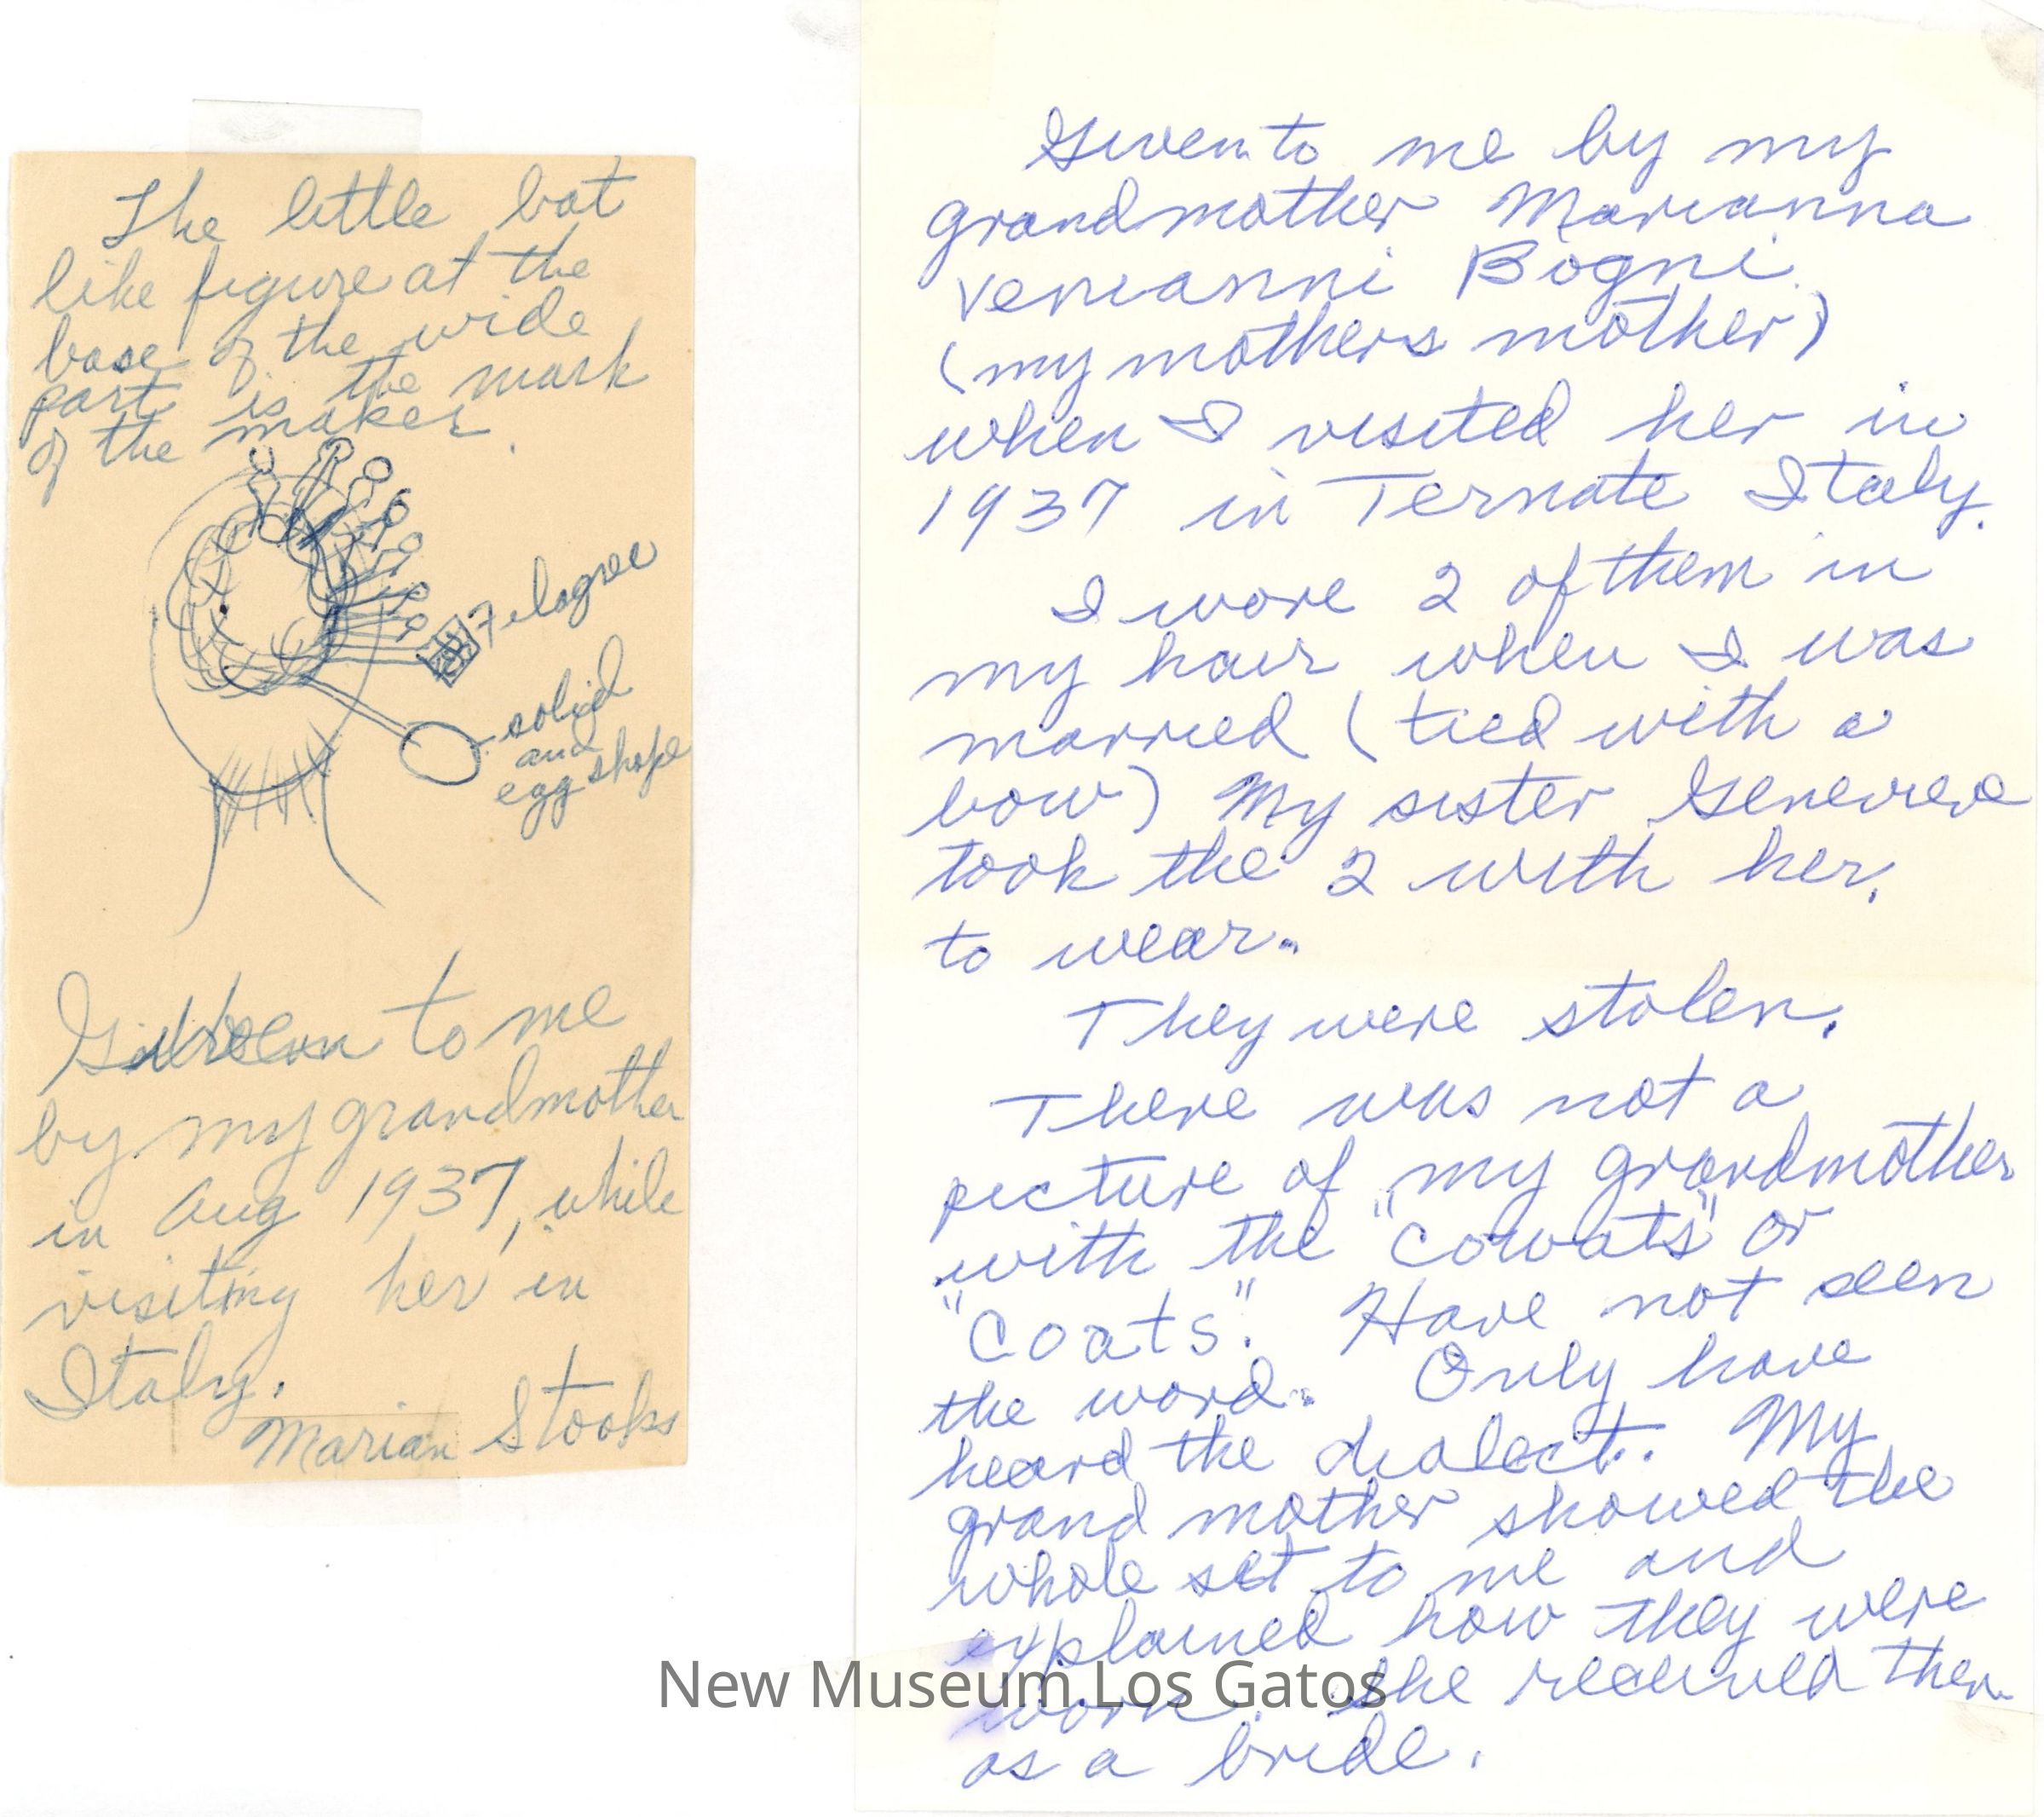 The little bat
like figure at the
base of the wide
part is the mark
of the maker.
Filagree
solid
and
egg shape
to me
by my grandmother
in Aug 1937, while
visiting her in
Italy.
Marian Stooks
Given to me by my
grandmother Marianna
Venianni Bogni
(my mothers mother)
when I visited her in
1937 in Ternate Italy.
I wore 2 of them in
my hair when I was
married (tied with a
bow) My sister Genevieve
took the 2 with her.
to wear.
They were stolen.
There was not a
picture of my grandmother
with the "cowats" or
"coats". Have not seen
the word. Only have
heard the dialect. My
grand mother showed the
whole set to me and
explained how they were
worn. She received them
as a bride.
New Museum Los Gatos